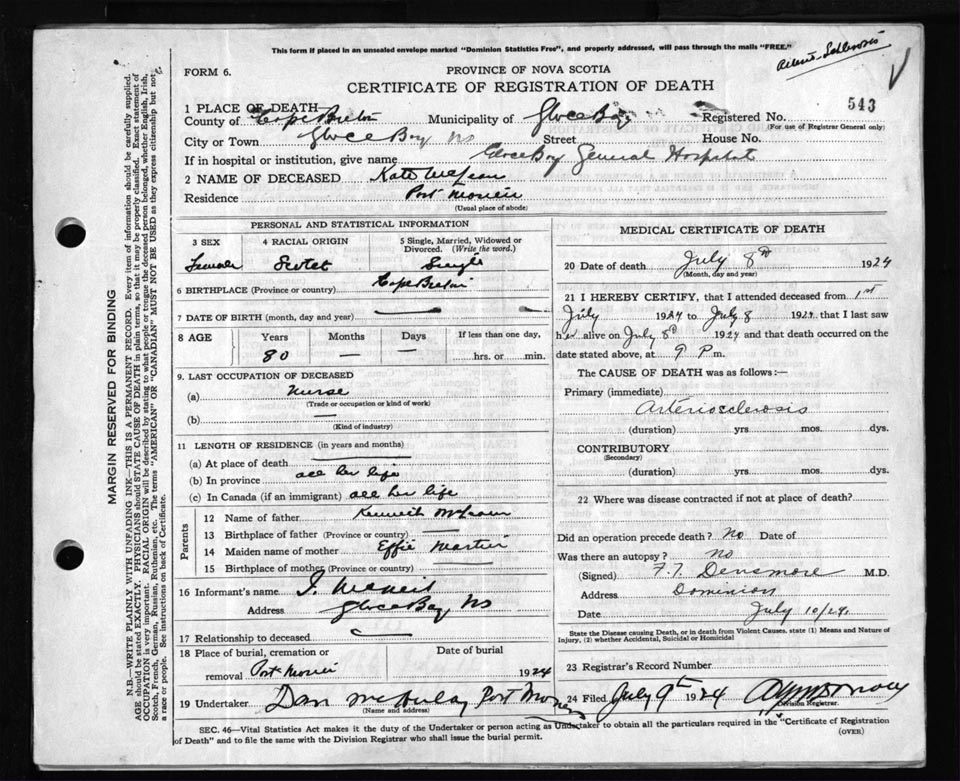 This form if placed in an unsealed envelope marked "Dominion Statistics Free", and properly addressed, will pass through the mails "FREE."
FORM 6.
PROVINCE OF NOVA SCOTIA
CERTIFICATE OF REGISTRATION OF DEATH
543
1 PLACE OF DEATH
County of Cape Breton Municipality of Glace Bay Registered No.
(For use of Registrar General only)
City or Town Glace Bay NS Street House No.
If in hospital or institution, give name Glace Bay General Hospital
2 NAME OF DECEASED Kate McLean
Residence Port Morien
(Usual place of abode)
PERSONAL AND STATISTICAL INFORMATION
3 SEX 4 RACIAL ORIGIN 5 Single, Married, Widowed or Divorced. (Write the word.)
Female Scotch Single
6 BIRTHPLACE (Province or country) Cape Breton
7 DATE OF BIRTH (month, day and year)
8 AGE Years Months Days If less than one day,
80 — — hrs. or min.
9. LAST OCCUPATION OF DECEASED
(a) Nurse
(Trade or occupation or kind of work)
(b) —
(Kind of industry)
11 LENGTH OF RESIDENCE (in years and months)
(a) At place of death
(b) In province all her life
(c) In Canada (if an immigrant) all her life
Parents
12 Name of father Kenneth McLean
13 Birthplace of father (Province or country)
14 Maiden name of mother Effie Martin
15 Birthplace of mother (Province or country)
16 Informant's name J. McNeil
Address Glace Bay NS
17 Relationship to deceased
18 Place of burial, cremation or removal Port Morien Date of burial 1924
19 Undertaker Dan McAulay Port Morien
(Name and address)
MEDICAL CERTIFICATE OF DEATH
20 Date of death July 8th 1924
(Month, day and year)
21 I HEREBY CERTIFY, that I attended deceased from 1st
July 1924 to July 8 1924 that I last saw
her alive on July 8th 1924 and that death occurred on the
date stated above, at 9 P m.
The CAUSE OF DEATH was as follows:—
Primary (immediate)
Arteriosclerosis
(duration) yrs. mos. dys.
CONTRIBUTORY
(Secondary)
(duration) yrs. mos. dys.
22 Where was disease contracted if not at place of death?
Did an operation precede death? No Date of
Was there an autopsy? No
(Signed) F. T. Densmore M.D.
Address Dominion
Date July 10/24
State the Disease causing Death, or in death from Violent Causes, state (1) Means and Nature of Injury, (2) whether Accidental, Suicidal or Homicidal
23 Registrar's Record Number
24 Filed July 9th 1924
Division Registrar.
SEC. 46—Vital Statistics Act makes it the duty of the Undertaker or person acting as Undertaker to obtain all the particulars required in the "Certificate of Registration
of Death" and to file the same with the Division Registrar who shall issue the burial permit.
(OVER)
MARGIN RESERVED FOR BINDING
N.B.—WRITE PLAINLY WITH UNFADING INK—THIS IS A PERMANENT RECORD. Every item of information should be carefully supplied.
AGE should be stated EXACTLY. PHYSICIANS should STATE CAUSE OF DEATH in plain terms, so that it may be properly classified. Exact statement of
OCCUPATION is very important. RACIAL ORIGIN will be described by stating to what people or tongue the deceased person belonged, whether English, Irish,
Scotch, French, German, Russian, Ruthenian, etc. The terms "AMERICAN" or "CANADIAN" MUST NOT BE USED as they express citizenship but not
a race or people. See instructions on back of Certificate.